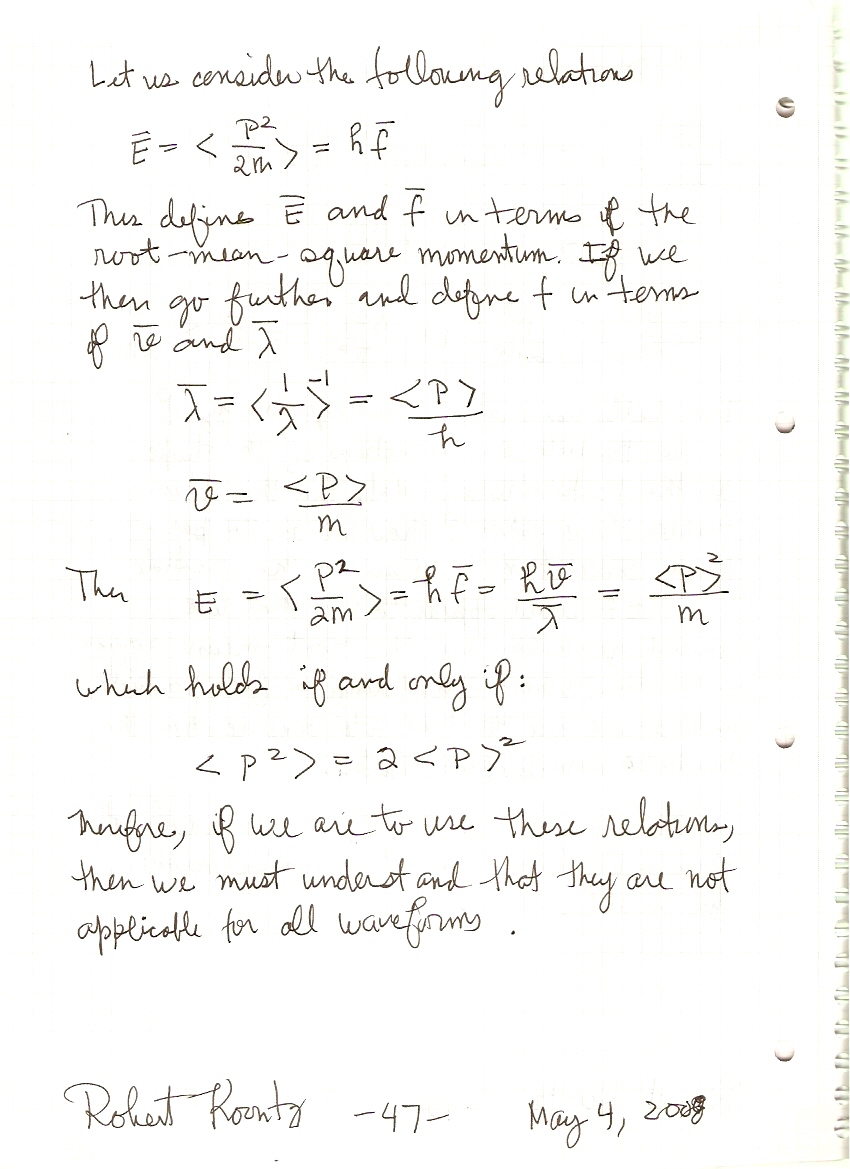 Let us consider the following relations
Ē = < p²/2m > = h f̄
This defines Ē and f̄ in terms of the
root-mean-square momentum. If we
then go further and define f in terms
of v̄ and λ̄
λ̄ = <1/λ>⁻¹ = <p>/h
v̄ = <p>/m
Then E = < p²/2m > = h f̄ = h v̄/λ̄ = <p>²/m
which holds if and only if:
< p² > = 2 <p>²
Therefore, if we are to use these relations,
then we must understand that they are not
applicable for all waveforms.
Robert Koontz -47- May 4, 2008